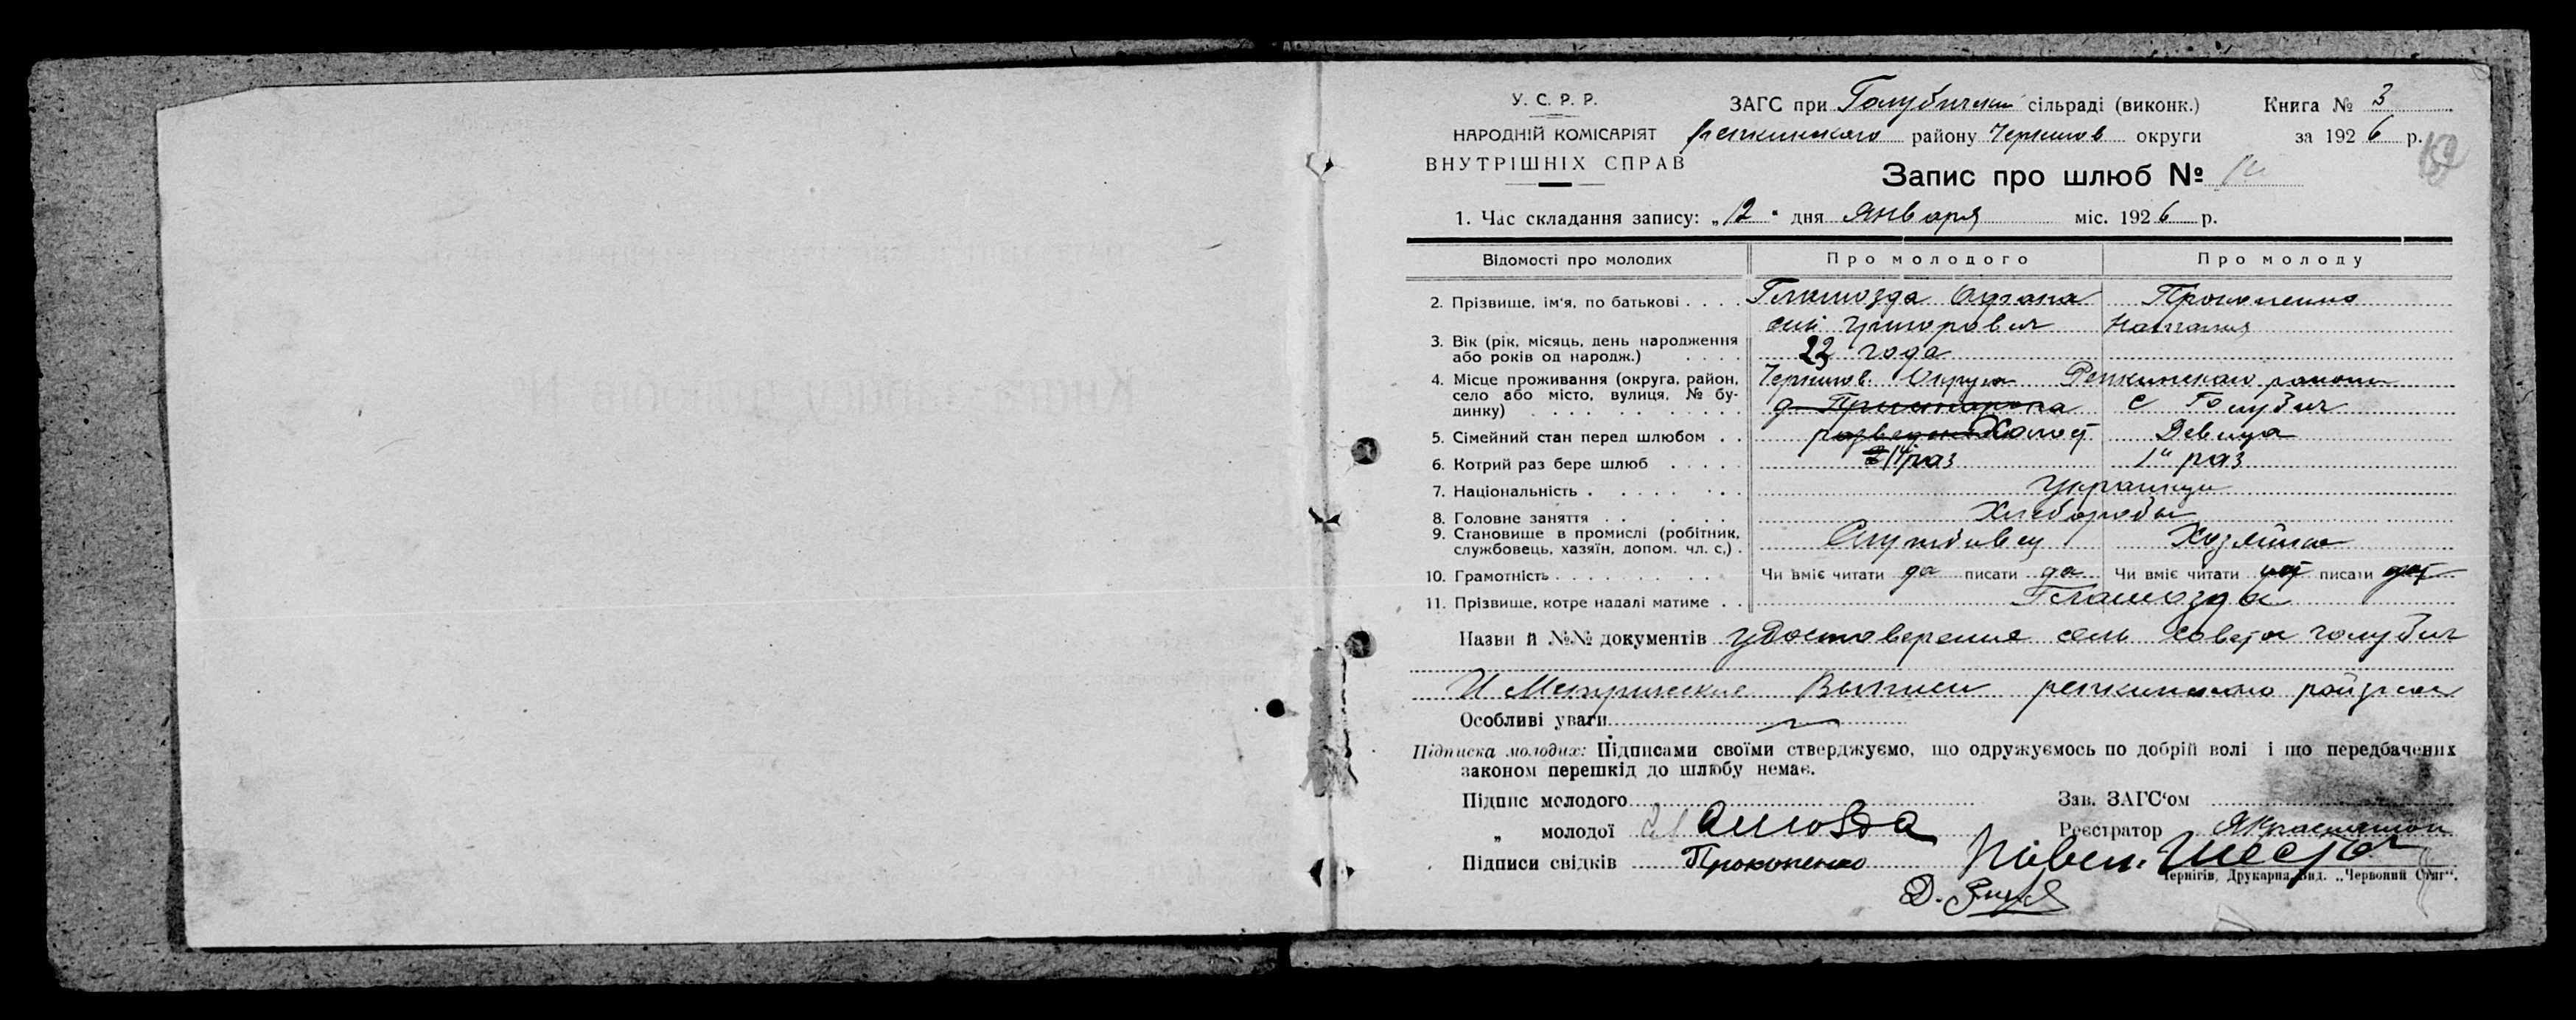 У. С. Р. Р.
НАРОДНІЙ КОМІСАРІЯТ
ВНУТРІШНІХ СПРАВ
ЗАГС при Голубичский сільраді (виконк.) Книга № 3
Репкинского району Чернигов округи за 1926 р.
Запис про шлюб №
1. Час складання запису: „12" дня Января міс. 1926 р.
Відомості про молодих Про молодого Про молоду
2. Прізвище, ім'я, по батькові . . . . Прокопенко
Григорович Наталия
3. Вік (рік, місяць, день народження
або років од народж.) . . . . 23 года
4. Місце проживання (округа, район, Чернигов. Округа Репкинского района
село або місто, вулиця, № бу- с Голубич
динку) . . . . . . . . .
5. Сімейний стан перед шлюбом . . Холост Девица
6. Котрий раз бере шлюб . . . . . 1й раз 1й раз
7. Національність . . . . . . . . Украинцы
8. Головне заняття . . . . . . Хлеборобы
9. Становище в промислі (робітник,
службовець, хазяїн, допом. чл. с.) . Службовец Хозяйка
10. Грамотність . . . . . . . . Чи вміє читати да писати да Чи вміє читати писати
11. Прізвище, котре надалі матиме . .
Назви й №№ документів Удостоверение сель совета Голубич
И Метрические Выписи репкинского
Особливі уваги
Підписка молодих: Підписами своїми стверджуємо, що одружуємось по добрій волі і що передбачених
законом перешкід до шлюбу немає.
Підпис молодого Зав. ЗАГС'ом
„ молодої Реєстратор
Підписи свідків Прокопенко
Чернігів, Друкарня Вид. „Червоний Стяг".